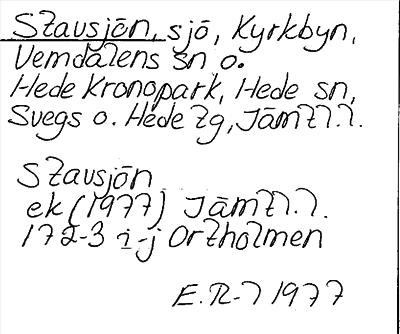 Stavsjön, sjö, Kyrkbyn,
Vemdalens sn o.
Hede Kronopark, Hede sn,
Svegs o. Hede tg, Jämtl.l.
Stavsjön
ek (1977) Jämtl.l.
172-3 i-j Ortholmen
E.R-l 1977